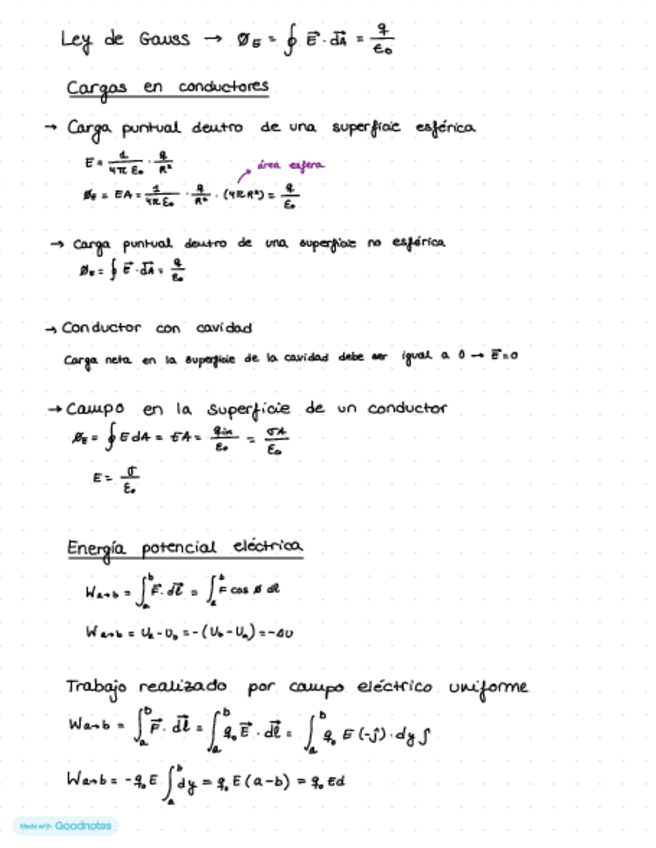 Ley de Gauss → Ø_E = ∮ E⃗ · dA⃗ = q/ε₀
Cargas en conductores
→ Carga puntual dentro de una superficie esférica
E = 1/(4π ε₀) · q/R²
área esfera
Ø_E = EA = 1/(4π ε₀) · q/R² · (4π R²) = q/ε₀
→ Carga puntual dentro de una superficie no esférica
Ø_E = ∮ E⃗ · dA⃗ = q/ε₀
→ Conductor con cavidad
Carga neta en la superficie de la cavidad debe ser igual a 0 → E⃗=0
→ Campo en la superficie de un conductor
Ø_E = ∮ E dA = EA = q_in/ε₀ = σA/ε₀
E = σ/ε₀
Energía potencial eléctrica
W a→b = ∫_a^b F⃗ · dl⃗ = ∫_a^b F cos ø dl
W a→b = U_a - U_b = -(U_b - U_a) = -ΔU
Trabajo realizado por campo eléctrico uniforme
W a→b = ∫_a^b F⃗ · dl⃗ = ∫_a^b q₀ E⃗ · dl⃗ = ∫_a^b q₀ E (-ĵ) · dy ĵ
W a→b = -q₀ E ∫_a^b dy = q₀ E (a-b) = q₀ Ed
Made with Goodnotes